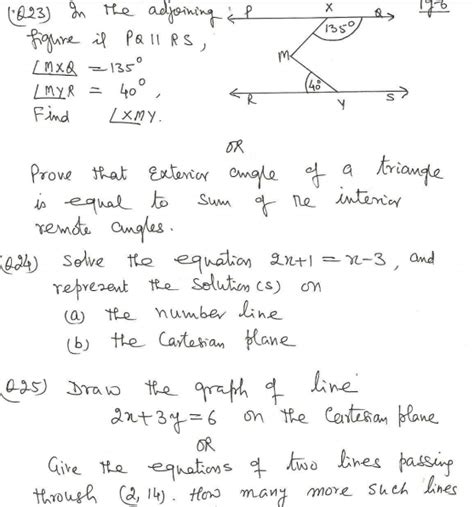 (Q23) In the adjoining : P X Q 19-6
figure if PQ || RS, 135°
∠MXQ = 135° M
∠MYR = 40°, 40°
Find ∠XMY. R Y S
OR
Prove that Exterior angle of a triangle
is equal to sum of the interior
remote angles.
(Q24) Solve the equation 2x+1 = x-3, and
represent the solution(s) on
(a) the number line
(b) the Cartesian plane
(Q25) Draw the graph of line
2x+3y=6 on the Cartesian plane
OR
Give the equations of two lines passing
through (2,14). How many more such lines